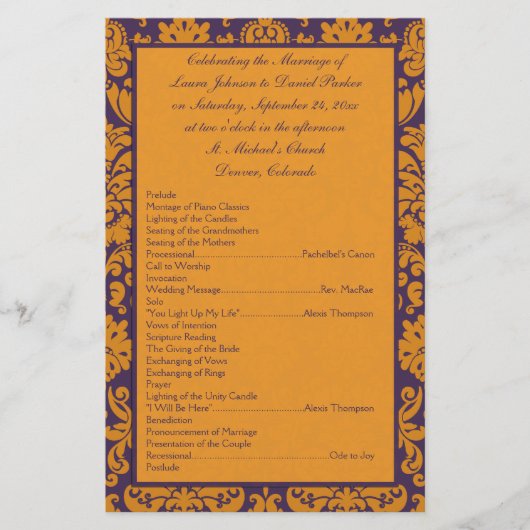 Celebrating the Marriage of
Laura Johnson to Daniel Parker
on Saturday, September 24, 20xx
at two o'clock in the afternoon
St. Michael's Church
Denver, Colorado
Prelude
Montage of Piano Classics
Lighting of the Candles
Seating of the Grandmothers
Seating of the Mothers
Processional..............................Pachelbel's Canon
Call to Worship
Invocation
Wedding Message............................Rev. MacRae
Solo
"You Light Up My Life".................Alexis Thompson
Vows of Intention
Scripture Reading
The Giving of the Bride
Exchanging of Vows
Exchanging of Rings
Prayer
Lighting of the Unity Candle
"I Will Be Here"........................Alexis Thompson
Benediction
Pronouncement of Marriage
Presentation of the Couple
Recessional......................................Ode to Joy
Postlude